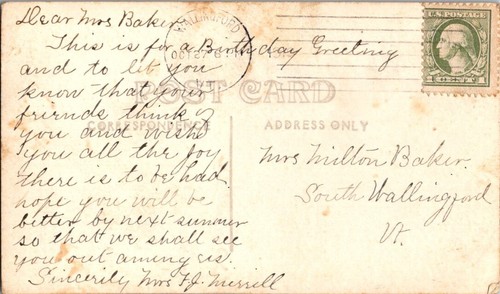 Dear Mrs Baker
This is for a Birthday Greeting
and to let you
know that your
friends think of
you and wish
you all the joy
there is to be had.
hope you will be
better by next summer
so that we shall see
you out among us.
Sincerily Mrs F.J. Merrill
WALLINGFORD
OCT 27
VT.
U.S. POSTAGE
POST CARD
CORRESPONDENCE
ADDRESS ONLY
Mrs Milton Baker.
South Wallingford
Vt.